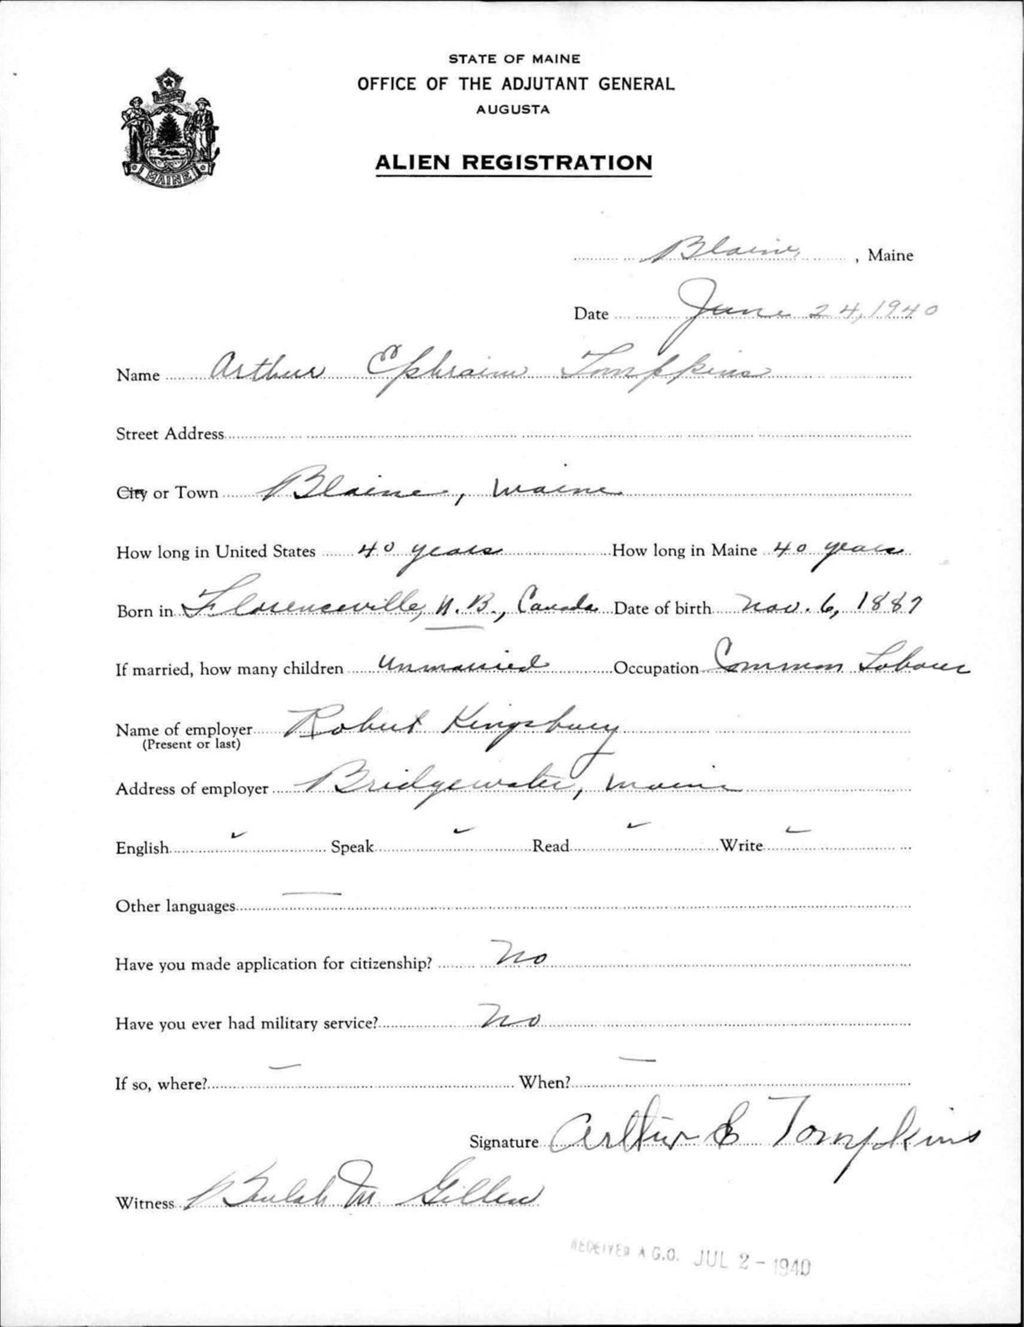 STATE OF MAINE
OFFICE OF THE ADJUTANT GENERAL
AUGUSTA
ALIEN REGISTRATION
MAINE
Blaine, , Maine
Date June 24, 1940
Name Arthur Ephraim Tompkins
Street Address
City or Town Blaine, Maine
How long in United States 40 years How long in Maine 40 years
Born in Florenceville, N.B., Canada Date of birth Nov. 6, 1887
If married, how many children Unmarried Occupation Common Labour
Name of employer Robert Kingsbury
(Present or last)
Address of employer Bridgewater, Maine
English ✓ Speak ✓ Read ✓ Write ✓
Other languages —
Have you made application for citizenship? No
Have you ever had military service? No
If so, where? — When? —
Signature Arthur E Tompkins
Witness Beulah M. Gillen
RECEIVED A.G.O. JUL 2 - 1940